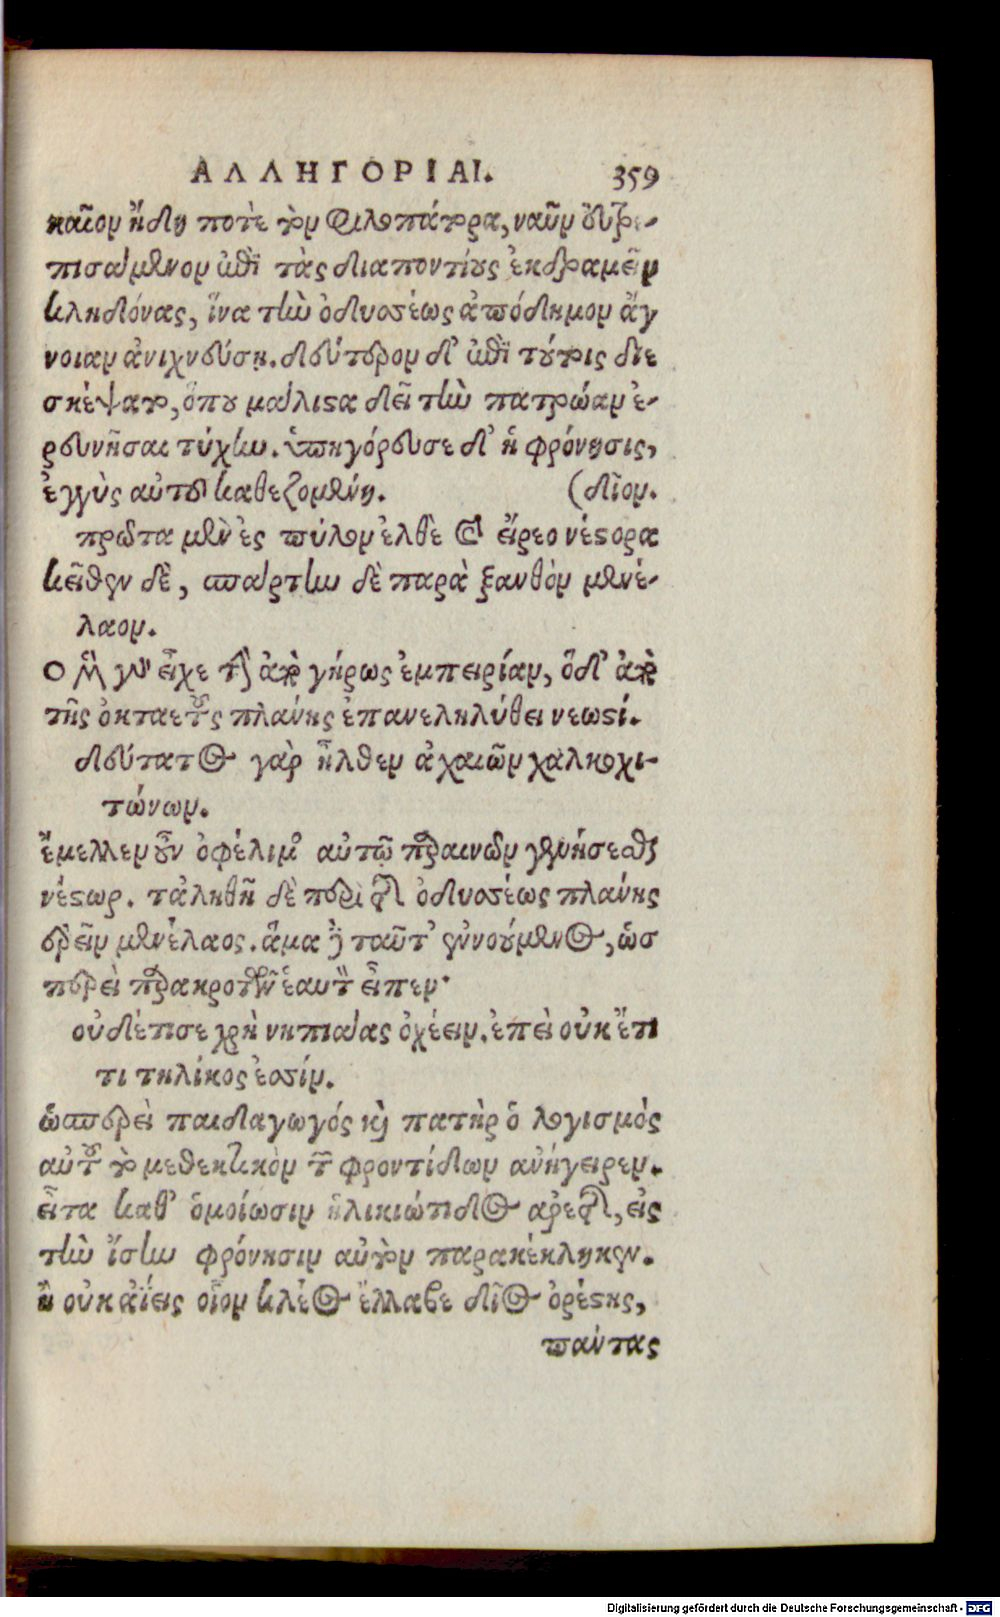 ΑΛΛΗΓΟΡΙΑΙ. 359
καῖον ἤδη ποτὲ τὸν φιλοπάτορα, ναῦν εὐτρε-
πισάμενον ἐπὶ τὰς διαποντίους ἐκδραμεῖν
κληδόνας, ἵνα τὴν ὀδυσσέως ἀπόδημον ἄγ
νοιαν ἀνιχνεύσῃ. δεύτερον δ' ἐπὶ τούτοις διε
σκέψατο, ὅπου μάλιστα δεῖ τὴν πατρώαν ἐ-
ρευνῆσαι τύχην. ὑπηγόρευσε δ' ἡ φρόνησις,
ἐγγὺς αὐτοῦ καθεζομένη. (δῖον.
πρῶτα μὲν ἐς πύλον ἐλθὲ καὶ εἴρεο νέστορα
κεῖθεν δὲ, σπάρτην δὲ παρὰ ξανθὸν μενέ-
λαον.
Ο μὲν γὰρ εἶχε τὴν ἀπὸ γήρως ἐμπειρίαν, ὃ δ' ἀπὸ
τῆς ὀκταετοῦς πλάνης ἐπανεληλύθει νεωστί.
δεύτατος γὰρ ἦλθεν ἀχαιῶν χαλκοχι-
τώνων.
ἔμελλεν οὖν ὀφέλιμος αὐτῷ παραινῶν γενήσεσθαι
νέστωρ. τἀληθῆ δὲ περὶ τῆς ὀδυσσέως πλάνης
ἐρεῖν μενέλαος. ἅμα δὲ ταῦτ' ἐννούμενος, ὡσ
περεὶ παρακροτῶν ἑαυτὸν εἶπεν·
οὐδέτι σε χρὴ νηπιάας ὀχέειν. ἐπεὶ οὐκ ἔτι
τι τηλίκος ἐσσίν.
ὡσπερεὶ παιδαγωγός καὶ πατὴρ ὁ λογισμὸς
αὐτοῦ τὸ μεθεκτικὸν τῶν φροντίδων ἀνήγειρεν.
εἶτα καθ' ὁμοίωσιν ἡλικιώτιδος ἀρετῆς, εἰς
τὴν ἴσην φρόνησιν αὐτὸν παρακέκληκεν.
ἢ οὐκ ἀΐεις οἷον κλέος ἔλλαβε δῖος ὀρέστης,
πάντας
Digitalisierung gefördert durch die Deutsche Forschungsgemeinschaft - DFG